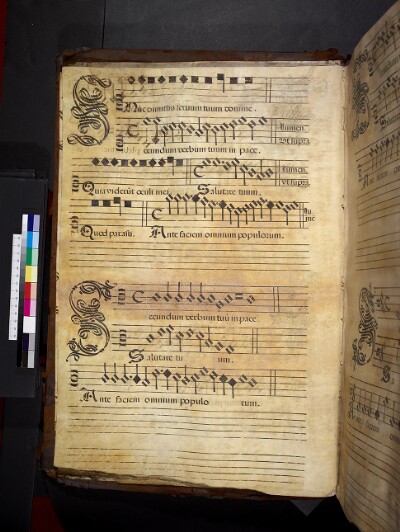 Nūc dimittis servum tuum domine.
Lumen.
Vt supra.
ecundum verbum tuum in pace.
Quia viderūt oculi mei. Salutare tuum.
Lumen.
Vt supra.
Quod parasti. Ante faciem omnium populorum.
Lu
mē
ecundum verbum tuū in pace
Salutare tu um.
Ante faciem omnium populo rum.